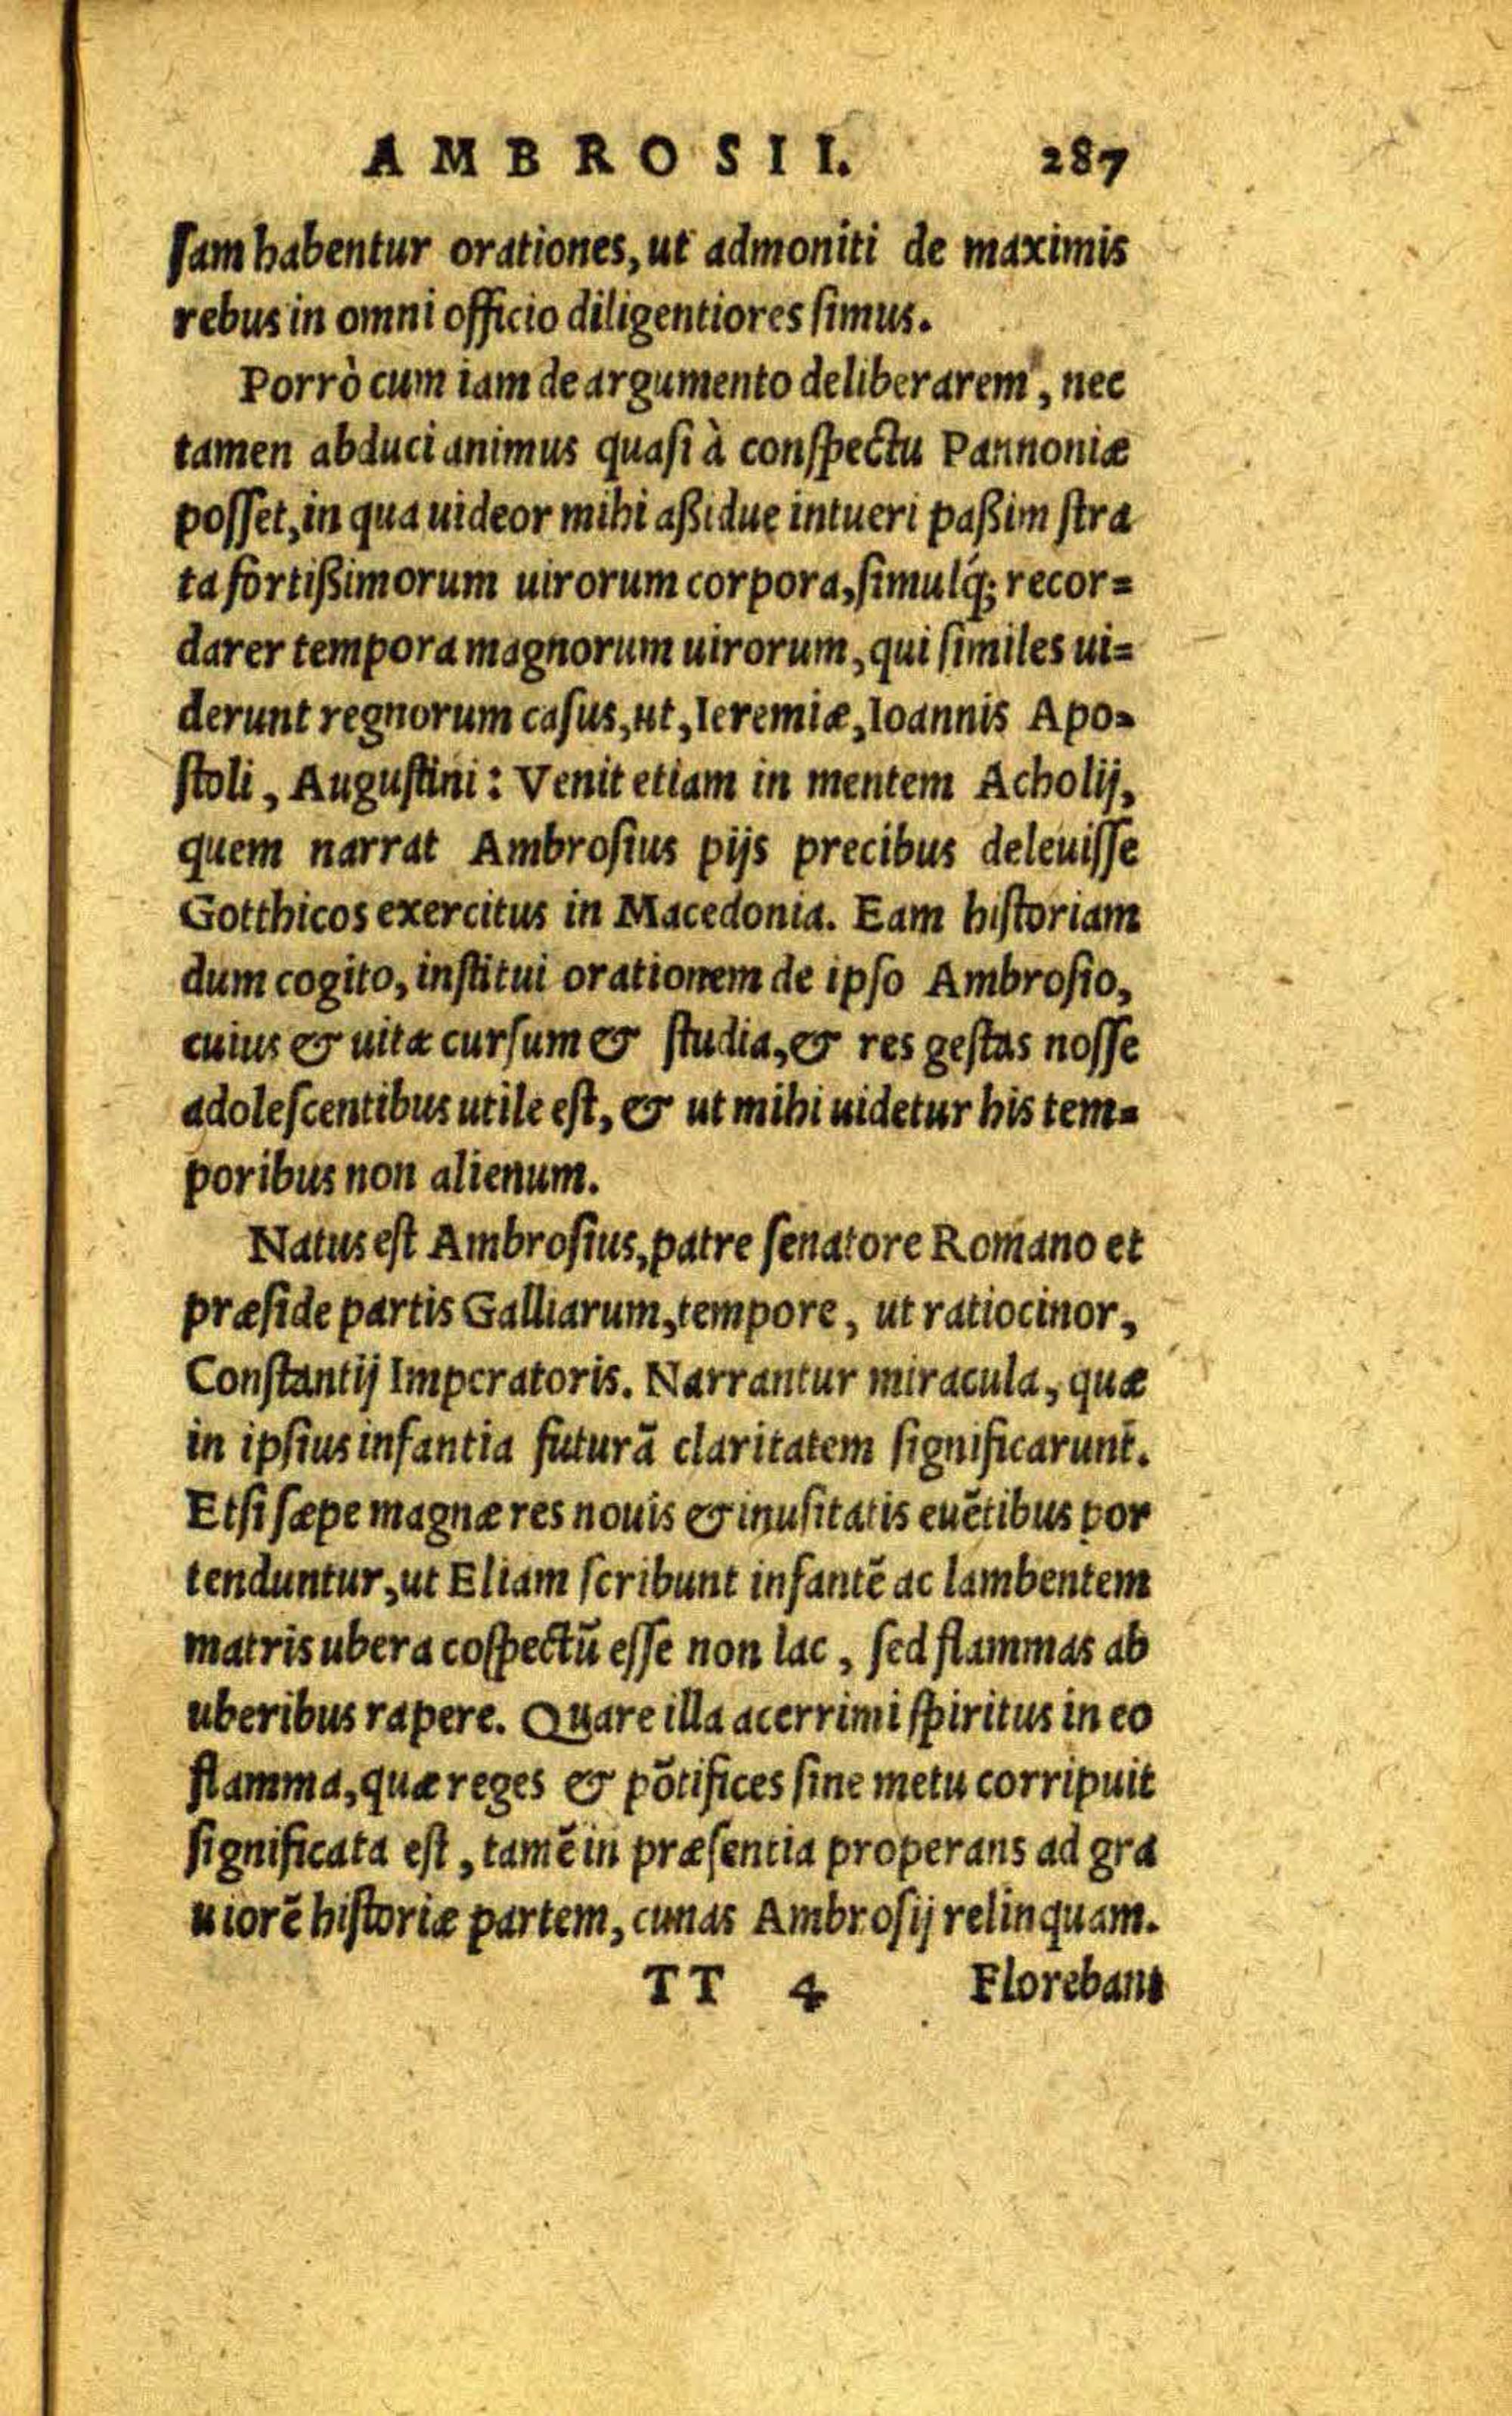 AMBROSII. 287
ſam habentur orationes, ut admoniti de maximis
rebus in omni officio diligentiores ſimus.
Porrò cum iam de argumento deliberarem, nec
tamen abduci animus quaſi à conſpectu Pannoniæ
poſſet, in qua uideor mihi aßidue intueri paßim ſtra
ta fortißimorum uirorum corpora, ſimulq́; recor=
darer tempora magnorum uirorum, qui ſimiles ui=
derunt regnorum caſus, ut, Ieremiæ, Ioannis Apo=
ſtoli, Auguſtini: Venit etiam in mentem Acholij,
quem narrat Ambroſius pijs precibus deleuiſſe
Gotthicos exercitus in Macedonia. Eam hiſtoriam
dum cogito, inſtitui orationem de ipſo Ambroſio,
cuius & uitæ curſum & ſtudia, & res geſtas noſſe
adoleſcentibus utile eſt, & ut mihi uidetur his tem=
poribus non alienum.
Natus eſt Ambroſius, patre ſenatore Romano et
præſide partis Galliarum, tempore, ut ratiocinor,
Conſtantij Imperatoris. Narrantur miracula, quæ
in ipſius infantia futurã claritatem ſignificarunt.
Etſi ſæpe magnæ res nouis & inuſitatis euẽtibus por
tenduntur, ut Eliam ſcribunt infantẽ ac lambentem
matris ubera coſpectũ eſſe non lac, ſed flammas ab
uberibus rapere. Quare illa acerrimi ſpiritus in eo
flamma, quæ reges & põtifices ſine metu corripuit
ſignificata eſt, tamẽ in præſentia properans ad gra
uiorẽ hiſtoriæ partem, cunas Ambroſij relinquam.
TT 4 Florebant